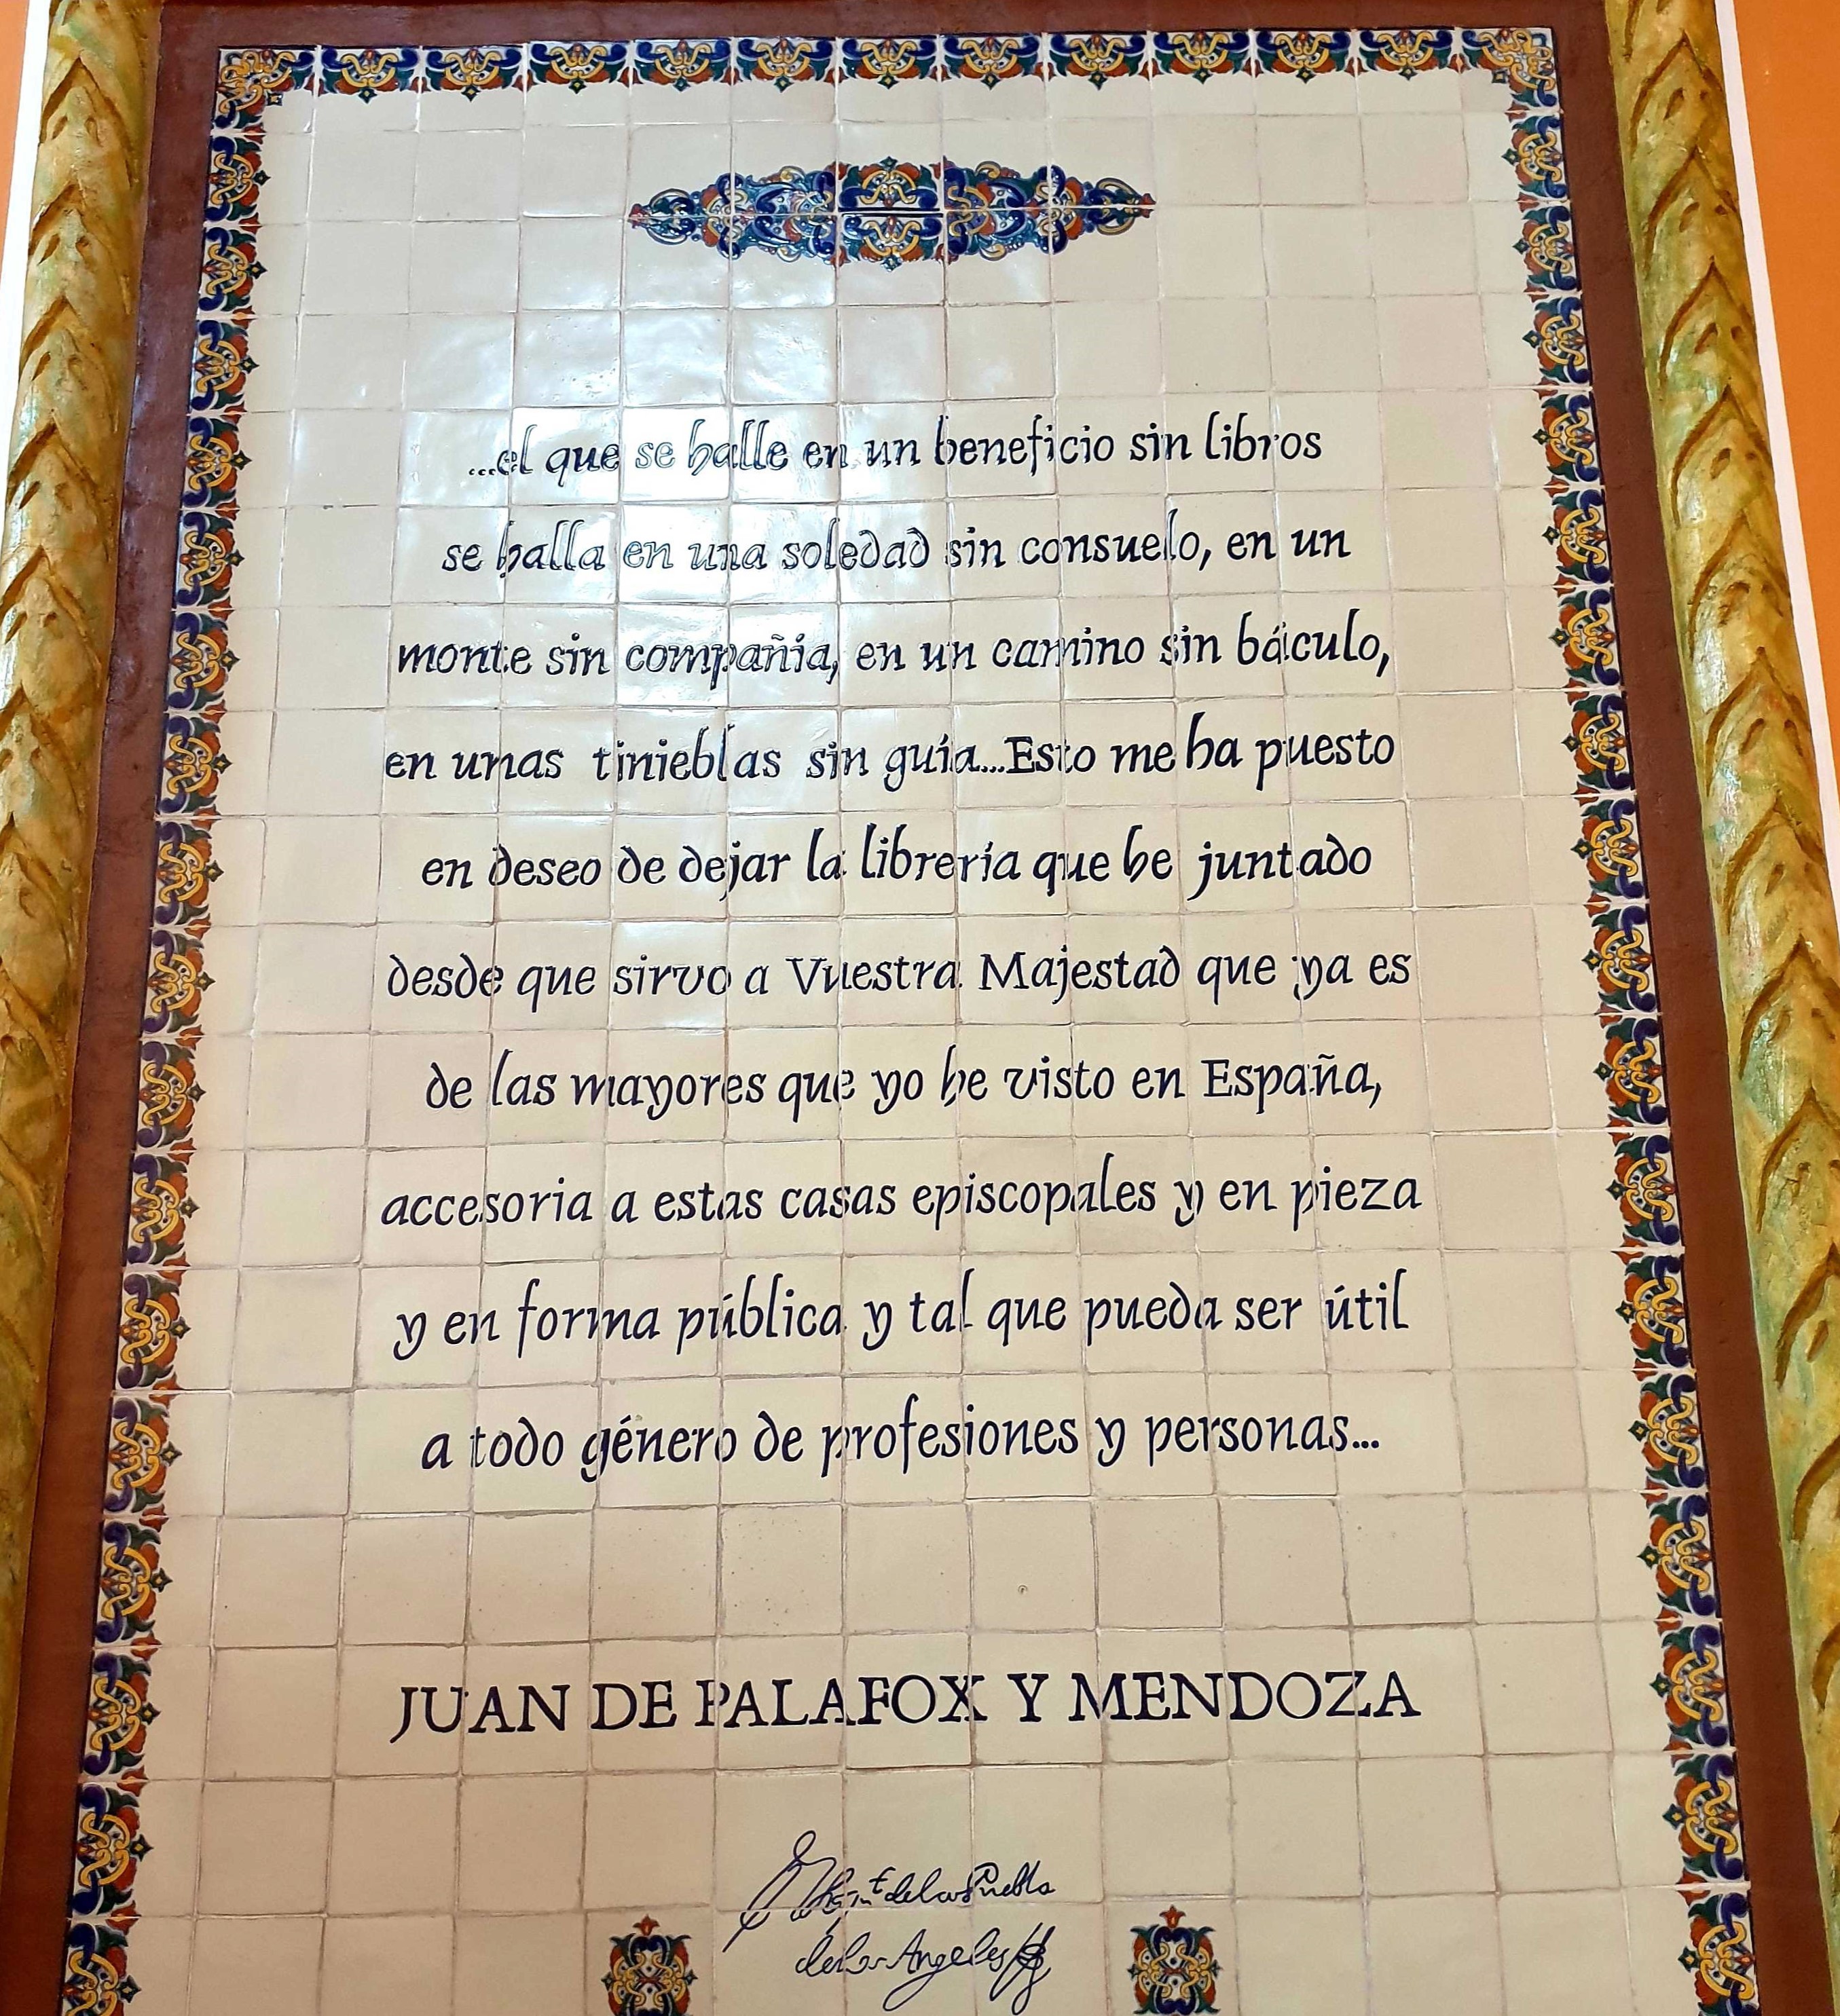 ...el que se halle en un beneficio sin libros
se halla en una soledad sin consuelo, en un
monte sin compañia, en un camino sin báculo,
en unas tinieblas sin guía...Esto me ha puesto
en deseo de dejar la librería que he juntado
desde que sirvo a Vuestra Majestad que ya es
de las mayores que yo he visto en España,
accesoria a estas casas episcopales y en pieza
y en forma pública y tal que pueda ser útil
a todo género de profesiones y personas...
JUAN DE PALAFOX Y MENDOZA
Puebla
Angeles